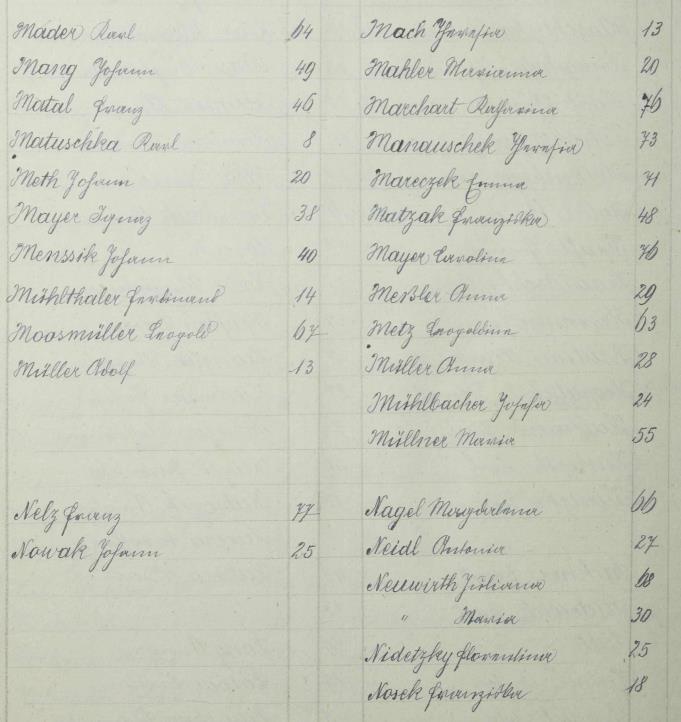 Mader Karl 64
Mang Johann 49
Matal Franz 46
Matuschka Karl 8
Meth Johann 20
Mayer Ignaz 38
Menssik Johann 40
Mühlthaler Ferdinand 14
Moosmüller Leopold 67
Müller Adolf 13
Nelz Franz 77
Nowak Johann 25
Mach Theresia 13
Mahler Marianna 20
Marchart Katharina 76
Manauschek Theresia 73
Mareczek Emma 71
Matzak Franziska 48
Mayer Caroline 76
Meßler Anna 29
Metz Leopoldine 63
Müller Anna 28
Mühlbacher Josefa 24
Müllner Maria 55
Nagel Magdalena 66
Neidl Antonia 27
Neuwirth Juliana 68
" Maria 30
Nidetzky Florentina 25
Nosek Franziska 18